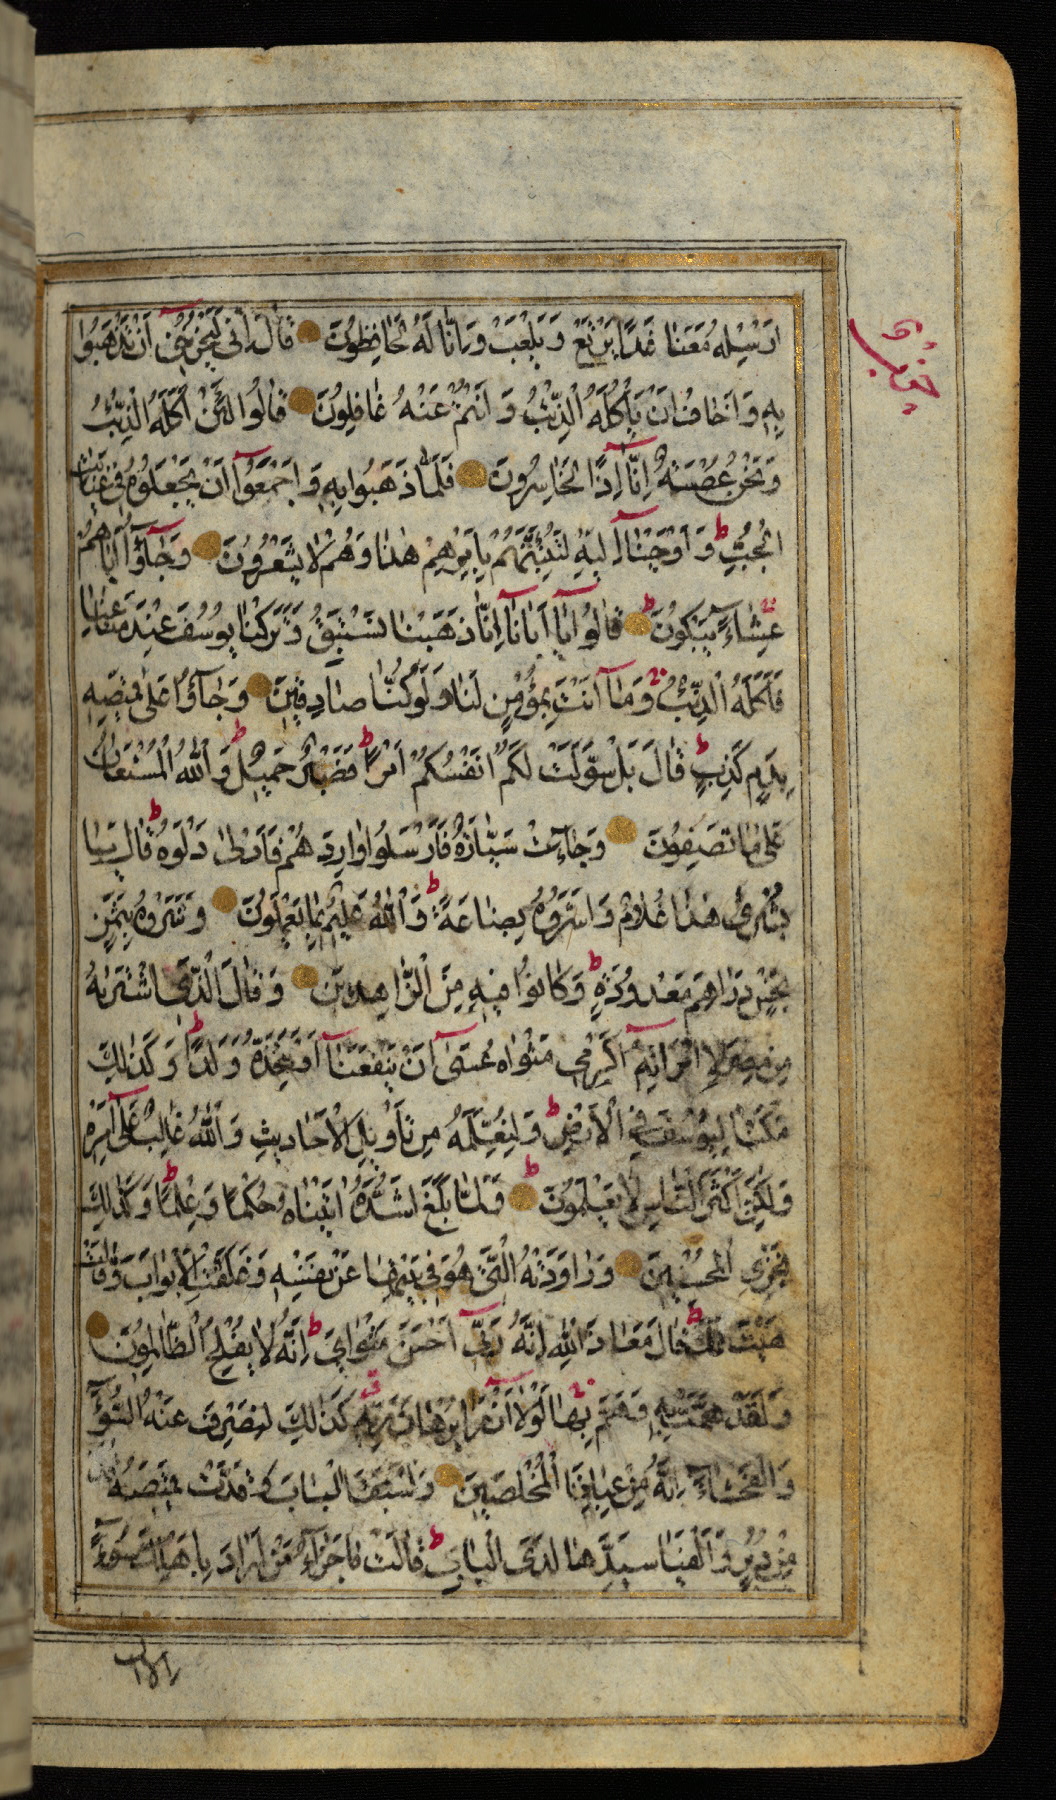 اَرْسِلْهُ مَعَنَا غَدًا يَرْتَعْ وَيَلْعَبْ وَاِنَّا لَهُ لَحَافِظُونَ قَالَ اِنِّى لَيَحْزُنُنِىٓ اَنْ تَذْهَبُوا
بِهِ وَاَخَافُ اَنْ يَأْكُلَهُ الذِّئْبُ وَاَنْتُمْ عَنْهُ غَافِلُونَ قَالُوا لَئِنْ اَكَلَهُ الذِّئْبُ
وَنَحْنُ عُصْبَةٌ اِنَّآ اِذًا لَخَاسِرُونَ فَلَمَّا ذَهَبُوا بِهِ وَاَجْمَعُوٓا اَنْ يَجْعَلُوهُ فِى غَيَابَتِ
الْجُبِّ ط وَاَوْحَيْنَآ اِلَيْهِ لَتُنَبِّئَنَّهُمْ بِاَمْرِهِمْ هٰذَا وَهُمْ لَا يَشْعُرُونَ وَجَآؤُٓا اَبَاهُمْ
عِشَآءً يَبْكُونَ ط قَالُوا يَآ اَبَانَآ اِنَّا ذَهَبْنَا نَسْتَبِقُ وَتَرَكْنَا يُوسُفَ عِنْدَ مَتَاعِنَا
فَاَكَلَهُ الذِّئْبُ وَمَآ اَنْتَ بِمُؤْمِنٍ لَنَا وَلَوْ كُنَّا صَادِقِينَ وَجَآؤُا عَلٰى قَمِيصِهِ
بِدَمٍ كَذِبٍ ط قَالَ بَلْ سَوَّلَتْ لَكُمْ اَنْفُسُكُمْ اَمْرًا ط فَصَبْرٌ جَمِيلٌ ط وَاللّٰهُ الْمُسْتَعَانُ
عَلٰى مَا تَصِفُونَ وَجَآءَتْ سَيَّارَةٌ فَاَرْسَلُوا وَارِدَهُمْ فَاَدْلٰى دَلْوَهُ ط قَالَ يَا
بُشْرٰى هٰذَا غُلَامٌ وَاَسَرُّوهُ بِضَاعَةً ط وَاللّٰهُ عَلِيمٌ بِمَا يَعْمَلُونَ وَشَرَوْهُ بِثَمَنٍ
بَخْسٍ دَرَاهِمَ مَعْدُودَةٍ ط وَكَانُوا فِيهِ مِنَ الزَّاهِدِينَ وَقَالَ الَّذِى اشْتَرٰيهُ
مِنْ مِصْرَ لِامْرَاَتِهِٓ اَكْرِمِى مَثْوٰاهُ عَسٰىٓ اَنْ يَنْفَعَنَآ اَوْ نَتَّخِذَهُ وَلَدًا ط وَكَذٰلِكَ
مَكَّنَّا لِيُوسُفَ فِى الْاَرْضِ ط وَلِنُعَلِّمَهُ مِنْ تَأْوِيلِ الْاَحَادِيثِ وَاللّٰهُ غَالِبٌ عَلٰىٓ اَمْرِهِ
وَلٰكِنَّ اَكْثَرَ النَّاسِ لَا يَعْلَمُونَ ط وَلَمَّا بَلَغَ اَشُدَّهُ اٰتَيْنَاهُ حُكْمًا وَعِلْمًا ط وَكَذٰلِكَ
نَجْزِى الْمُحْسِنِينَ وَرَاوَدَتْهُ الَّتِى هُوَ فِى بَيْتِهَا عَنْ نَفْسِهِ وَغَلَّقَتِ الْاَبْوَابَ وَقَالَتْ
هَيْتَ لَكَ ط قَالَ مَعَاذَ اللّٰهِ اِنَّهُ رَبِّىٓ اَحْسَنَ مَثْوَاىَ ط اِنَّهُ لَا يُفْلِحُ الظَّالِمُونَ
وَلَقَدْ هَمَّتْ بِهِ وَهَمَّ بِهَا لَوْلَآ اَنْ رَاٰ بُرْهَانَ رَبِّهِ كَذٰلِكَ لِنَصْرِفَ عَنْهُ السُّوٓءَ
وَالْفَحْشَآءَ اِنَّهُ مِنْ عِبَادِنَا الْمُخْلَصِينَ وَاسْتَبَقَا الْبَابَ وَقَدَّتْ قَمِيصَهُ
مِنْ دُبُرٍ وَاَلْفَيَا سَيِّدَهَا لَدَى الْبَابِ ط قَالَتْ مَا جَزَآءُ مَنْ اَرَادَ بِاَهْلِكَ سُوٓءًا
اِلَّا اَنْ